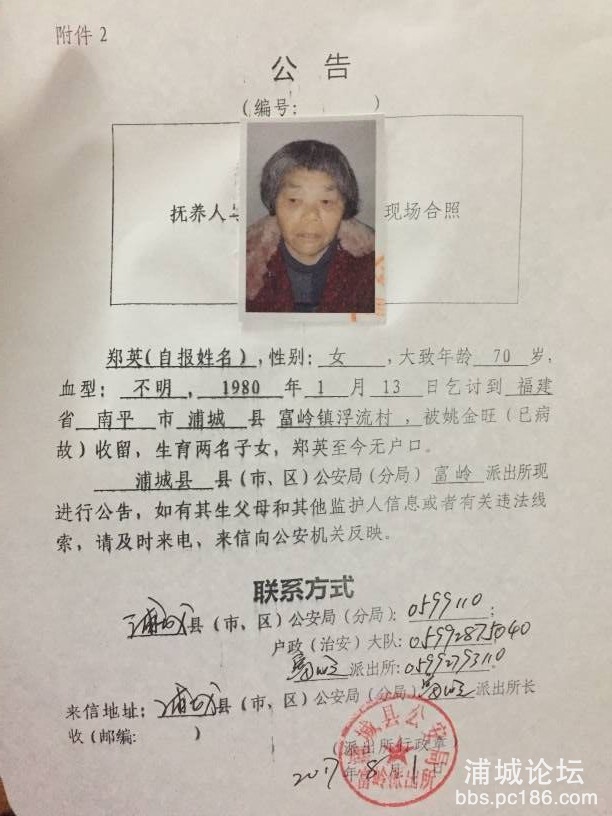 附件 2
公 告
(编号: )
抚养人与 现场合照
郑英(自报姓名),性别: 女 ,大致年龄 70 岁,
血型: 不明 , 1980 年 1 月 13 日乞讨到 福建
省 南平 市 浦城 县 富岭镇浮流村 ,被姚金旺(已病
故)收留,生育两名子女,郑英至今无户口。
浦城县 县(市、区)公安局(分局) 富岭 派出所现
进行公告,如有其生父母和其他监护人信息或者有关违法线
索,请及时来电、来信向公安机关反映。
联系方式
浦城县(市、区)公安局(分局): 0599110;
户政(治安)大队: 05992875040
富岭派出所: 05992793110
来信地址: 浦城县(市、区)公安局(分局) 富岭派出所长
收(邮编: )
(派出所行政章)
2017年8月1日
浦城县公安局
富岭派出所
浦城论坛
bbs.pc186.com